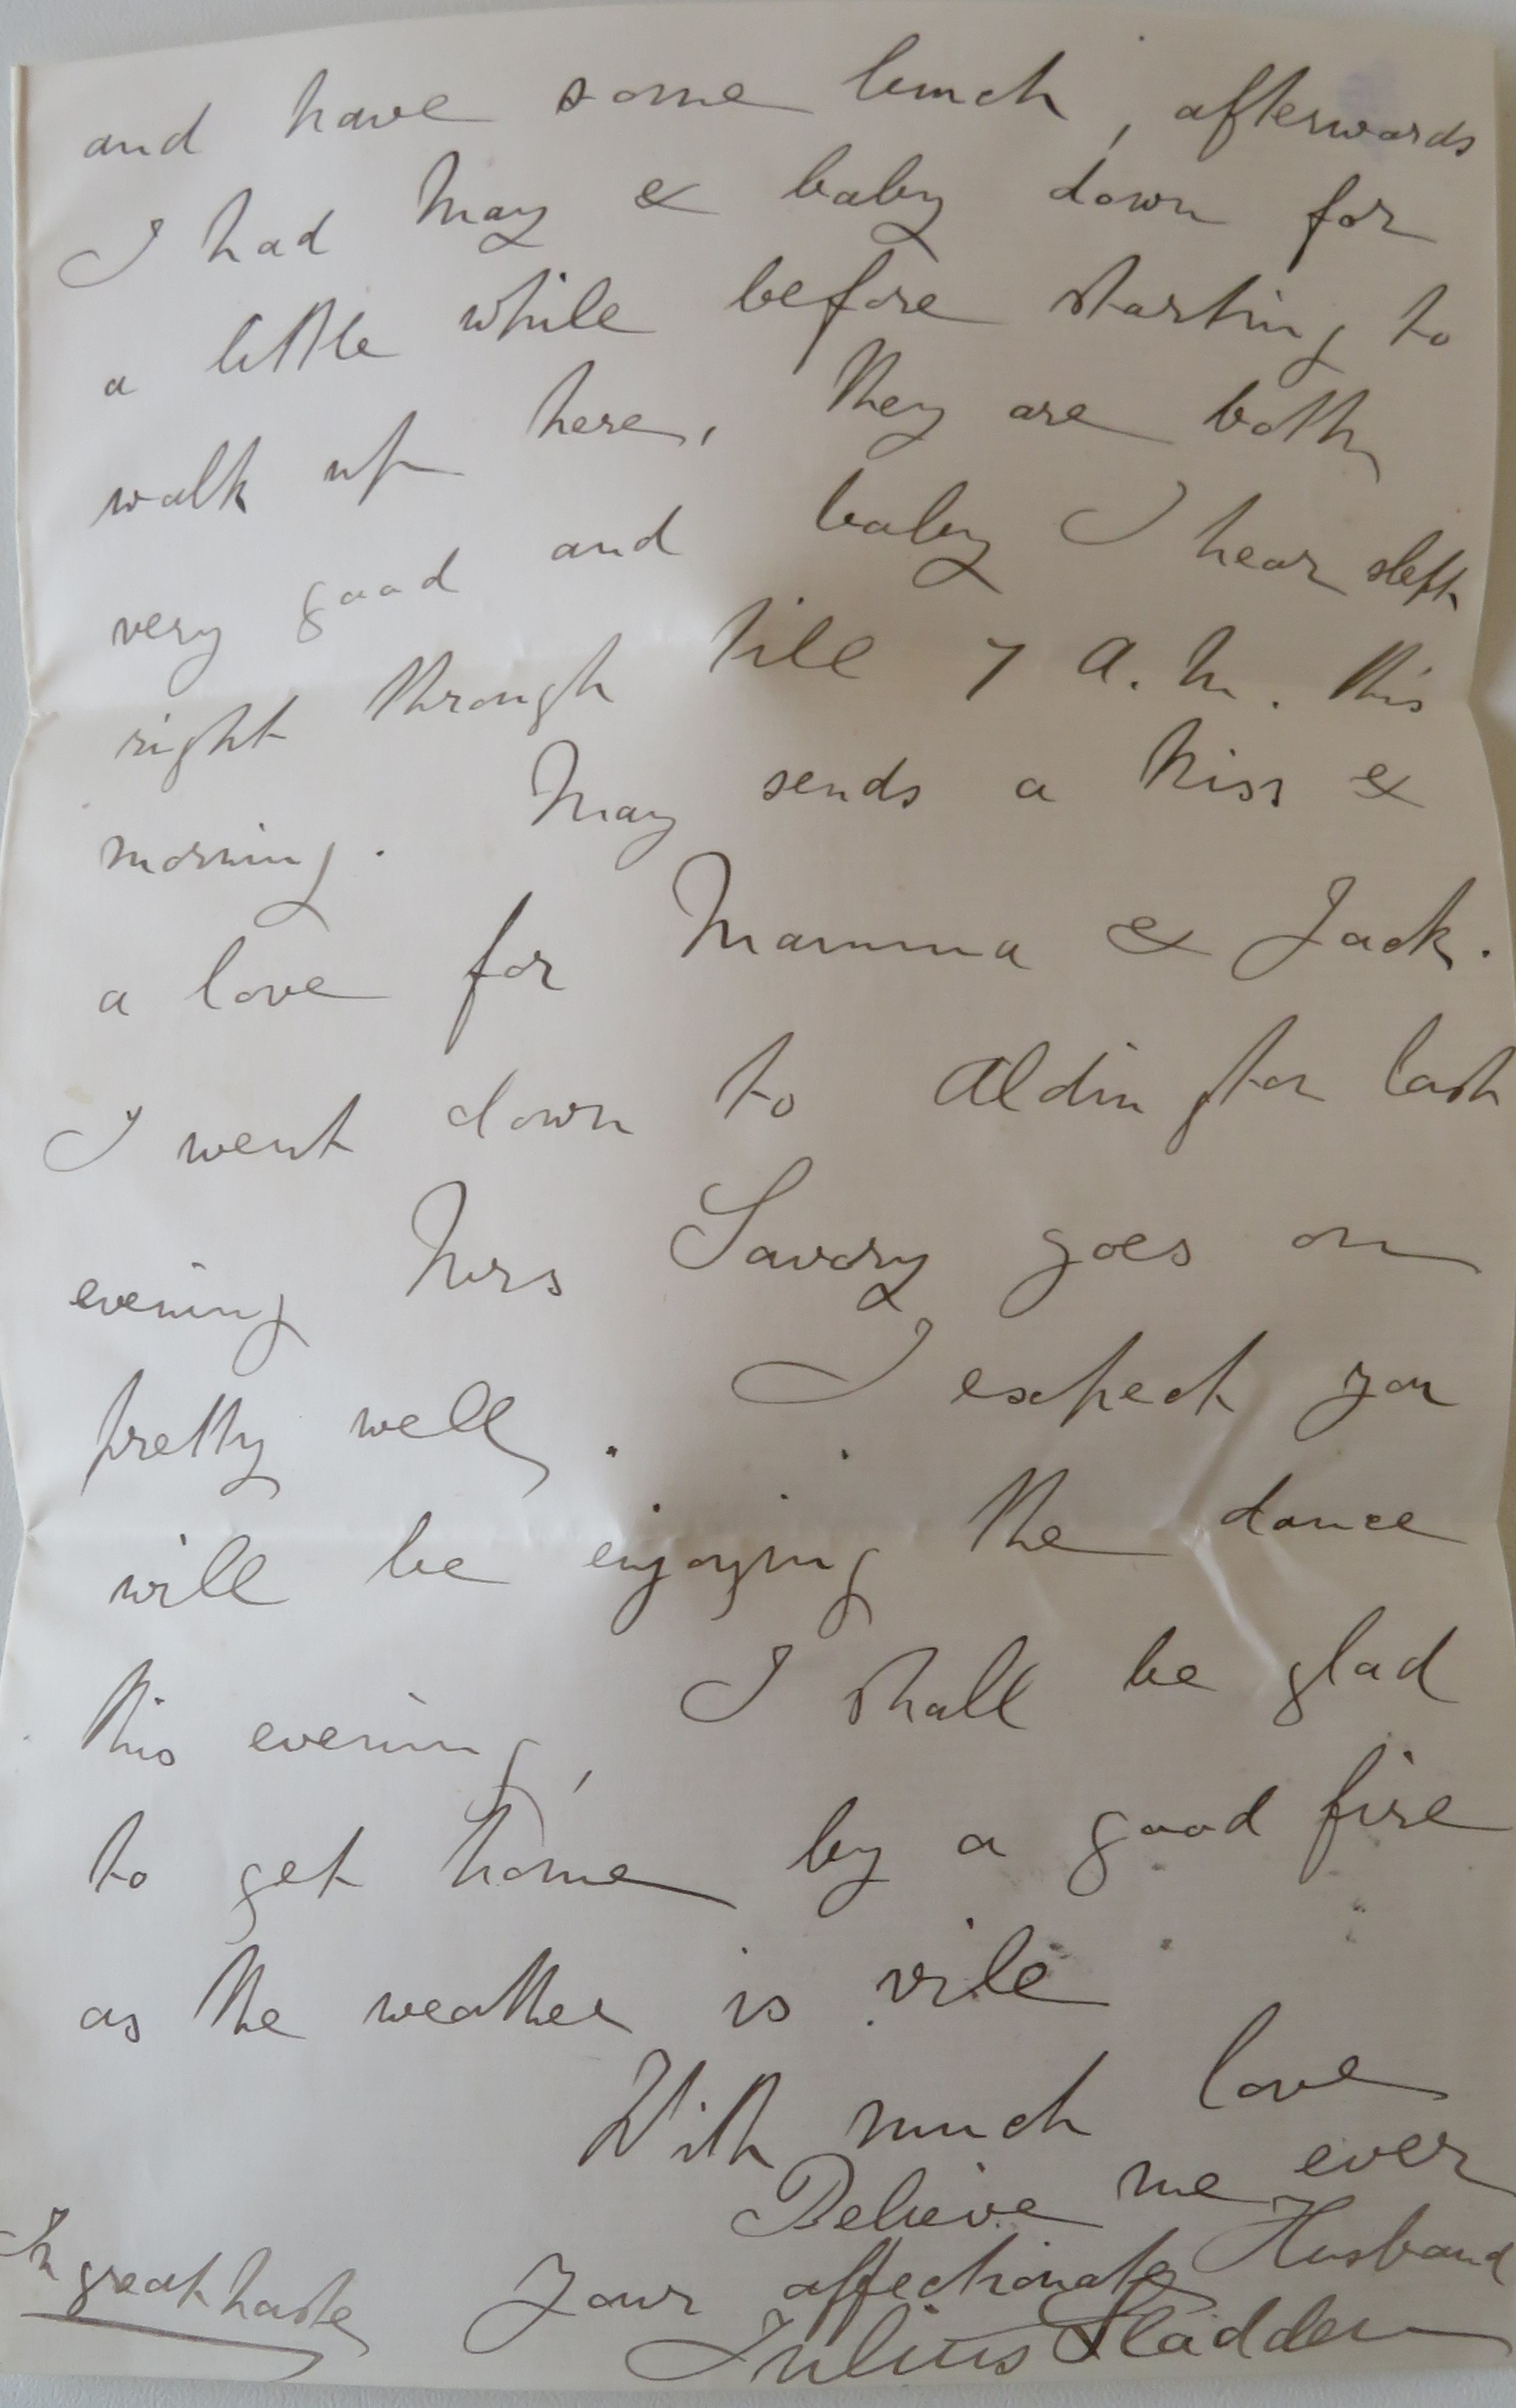 and have some lunch, afterwards
I had May & baby down for
a little while before starting to
walk up here, they are both
very good and baby I hear slept
right through till 7 A.M. this
morning. May sends a kiss &
a love for Mamma & Jack.
I went down to Aldington last
evening Mrs Savory goes on
pretty well. I expect you
will be enjoying the dance
this evening, I shall be glad
to get home by a good fire
as the weather is vile
With much love
Believe me ever
Your affectionate Husband
Julius Sladden
In great haste